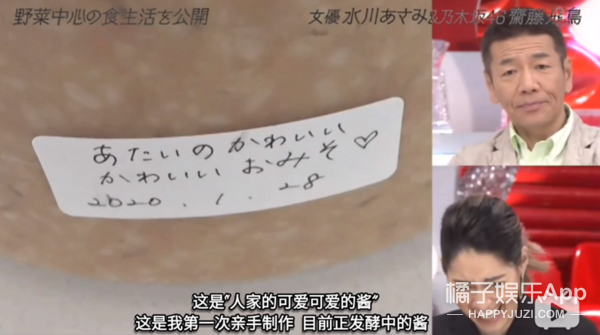 野菜中心の食生活を公開
女優 水川あさみ&乃木坂46 齋藤飛鳥
あたいのかわいい
かわいい おみそ♡
2020.1.28
这是"人家的可爱可爱的酱"
这是我第一次亲手制作 目前正发酵中的酱
橘子娱乐App
HAPPYJUZI.COM